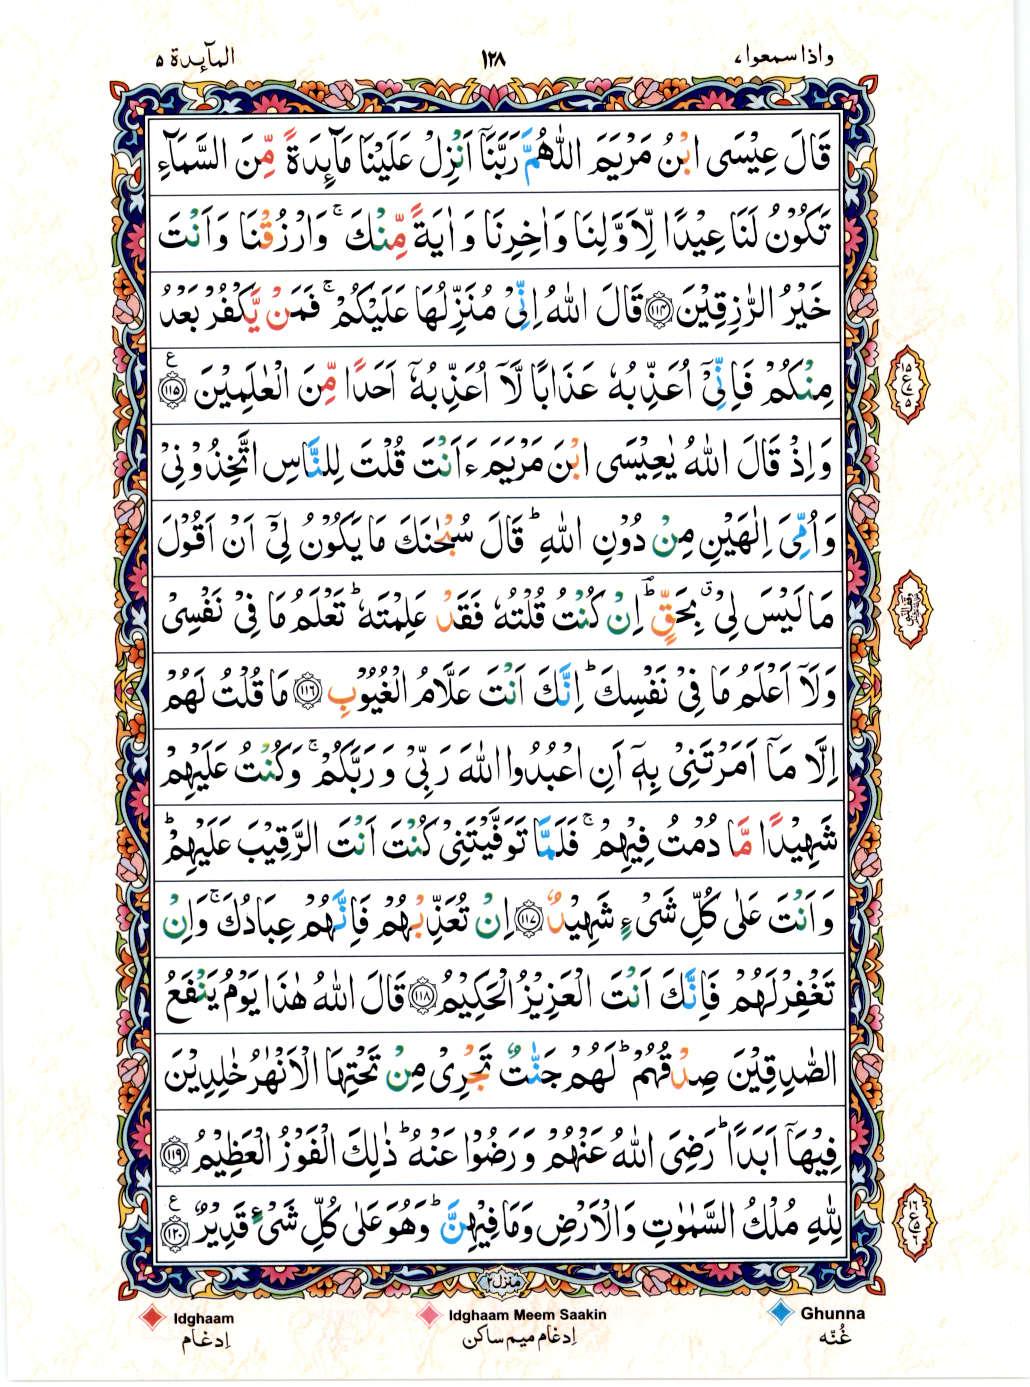 واذا سمعوا،
١٢٨
المآىِٕدة ٥
قَالَ عِيْسَى ابْنُ مَرْيَمَ اللّٰهُمَّ رَبَّنَاۤ اَنْزِلْ عَلَيْنَا مَآىِٕدَةً مِّنَ السَّمَآءِ
تَكُوْنُ لَنَا عِيْدًا لِّاَوَّلِنَا وَاٰخِرِنَا وَاٰيَةً مِّنْكَ ۚ وَارْزُقْنَا وَاَنْتَ
خَيْرُ الرّٰزِقِيْنَ ﴿١١٤﴾ قَالَ اللّٰهُ اِنِّيْ مُنَزِّلُهَا عَلَيْكُمْ ۚ فَمَنْ يَّكْفُرْ بَعْدُ
مِنْكُمْ فَاِنِّيْۤ اُعَذِّبُهٗ عَذَابًا لَّاۤ اُعَذِّبُهٗۤ اَحَدًا مِّنَ الْعٰلَمِيْنَ ﴿١١٥﴾ ع
وَاِذْ قَالَ اللّٰهُ يٰعِيْسَى ابْنَ مَرْيَمَ ءَاَنْتَ قُلْتَ لِلنَّاسِ اتَّخِذُوْنِيْ
وَاُمِّيَ اِلٰهَيْنِ مِنْ دُوْنِ اللّٰهِ ؕ قَالَ سُبْحٰنَكَ مَا يَكُوْنُ لِيْۤ اَنْ اَقُوْلَ
مَا لَيْسَ لِيْ ۗ بِحَقٍّ ؕ اِنْ كُنْتُ قُلْتُهٗ فَقَدْ عَلِمْتَهٗ ؕ تَعْلَمُ مَا فِيْ نَفْسِيْ
وَلَاۤ اَعْلَمُ مَا فِيْ نَفْسِكَ ؕ اِنَّكَ اَنْتَ عَلَّامُ الْغُيُوْبِ ﴿١١٦﴾ مَا قُلْتُ لَهُمْ
اِلَّا مَاۤ اَمَرْتَنِيْ بِهٖۤ اَنِ اعْبُدُوا اللّٰهَ رَبِّيْ وَرَبَّكُمْ ۚ وَكُنْتُ عَلَيْهِمْ
شَهِيْدًا مَّا دُمْتُ فِيْهِمْ ۚ فَلَمَّا تَوَفَّيْتَنِيْ كُنْتَ اَنْتَ الرَّقِيْبَ عَلَيْهِمْ ؕ
وَاَنْتَ عَلٰى كُلِّ شَيْءٍ شَهِيْدٌ ﴿١١٧﴾ اِنْ تُعَذِّبْهُمْ فَاِنَّهُمْ عِبَادُكَ ۚ وَاِنْ
تَغْفِرْ لَهُمْ فَاِنَّكَ اَنْتَ الْعَزِيْزُ الْحَكِيْمُ ﴿١١٨﴾ قَالَ اللّٰهُ هٰذَا يَوْمُ يَنْفَعُ
الصّٰدِقِيْنَ صِدْقُهُمْ ؕ لَهُمْ جَنّٰتٌ تَجْرِيْ مِنْ تَحْتِهَا الْاَنْهٰرُ خٰلِدِيْنَ
فِيْهَاۤ اَبَدًا ؕ رَضِيَ اللّٰهُ عَنْهُمْ وَرَضُوْا عَنْهُ ؕ ذٰلِكَ الْفَوْزُ الْعَظِيْمُ ﴿١١٩﴾
لِلّٰهِ مُلْكُ السَّمٰوٰتِ وَالْاَرْضِ وَمَا فِيْهِنَّ ؕ وَهُوَ عَلٰى كُلِّ شَيْءٍ قَدِيْرٌ ﴿١٢٠﴾ ع
منزل ٢
Idghaam
Idghaam Meem Saakin
Ghunna
اِدغام
اِدغام میم ساکن
غُنّه